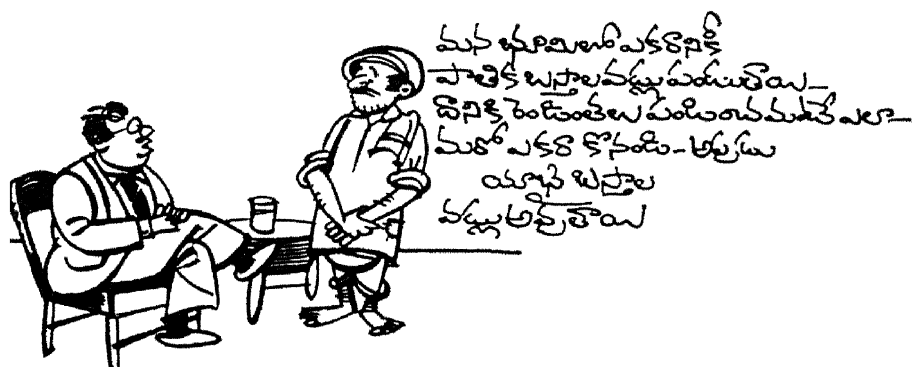 మన భూమిలో ఎకరానికి
పాతిక బస్తాల వడ్లు పండుతాయి -
దానికి రెండింతలు పండించమంటే ఎలా -
మరో ఎకరా కొనండి - అప్పుడు
యాభై బస్తాల
వడ్లు అవ్వుతాయి